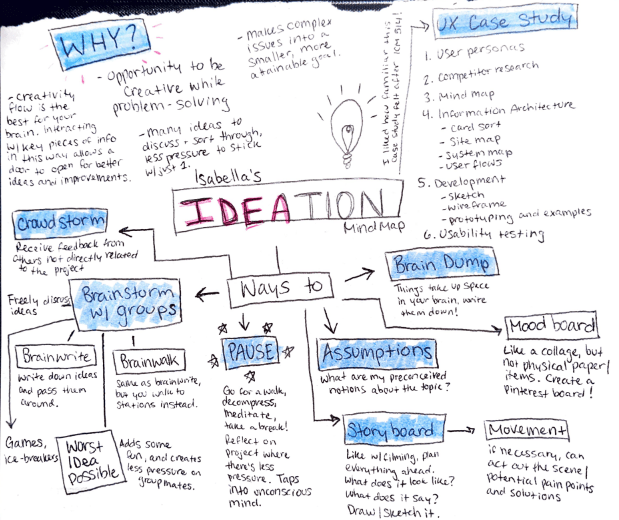 WHY?
- creativity
flow is the
best for your
brain. interacting
w/ key pieces of info
in this way allows a
door to open for better
ideas and improvements.
- opportunity to be
creative while
problem-solving
- makes complex
issues into a
smaller, more
attainable goal.
- many ideas to
discuss + sort through,
less pressure to stick
w/ just 1.
I liked how familiar this
case study felt after ICM 514!
UX Case Study
1. User personas
2. Competitor research
3. Mind map
4. Information Architecture
- card sort
- Site map
- System map
- User flows
5. Development
- Sketch
- wireframe
- prototyping and examples
6. Usability testing
Isabella's
IDEATION
MindMap
Ways to
Crowdstorm
Receive feedback from
others not directly related
to the project
Brainstorm
w/ groups
Freely discuss
ideas
Brainwrite
Write down ideas
and pass them
around.
Brainwalk
Same as brainwrite,
but you walk to
stations instead.
Games,
ice-breakers
Worst
Idea
Possible
Adds some
fun, and creates
less pressure on
groupmates.
PAUSE
Go for a walk,
decompress,
meditate,
take a break!
Reflect on
project where
there's less
pressure. Taps
into unconscious
mind.
Assumptions
What are my preconceived
notions about the topic?
Brain Dump
Things take up space
in your brain, write
them down!
Mood board
Like a collage, but
not physical paper/
items. Create a
Pinterest board!
Storyboard
Like w/ filming, plan
everything ahead.
What does it look like?
What does it say?
Draw/sketch it.
Movement
if necessary, can
act out the scene/
potential pain points
and solutions